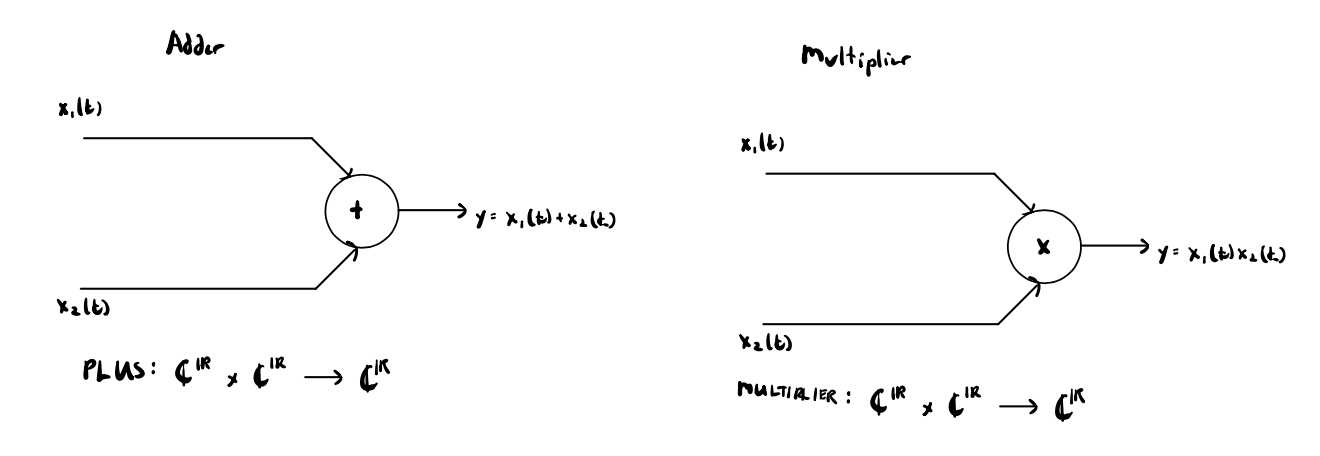 Adder
x₁(t)
+
y = x₁(t) + x₂(t)
x₂(t)
PLUS: ℂ^ℝ × ℂ^ℝ → ℂ^ℝ
Multiplier
x₁(t)
x
y = x₁(t) x₂(t)
x₂(t)
MULTIPLIER: ℂ^ℝ × ℂ^ℝ → ℂ^ℝ